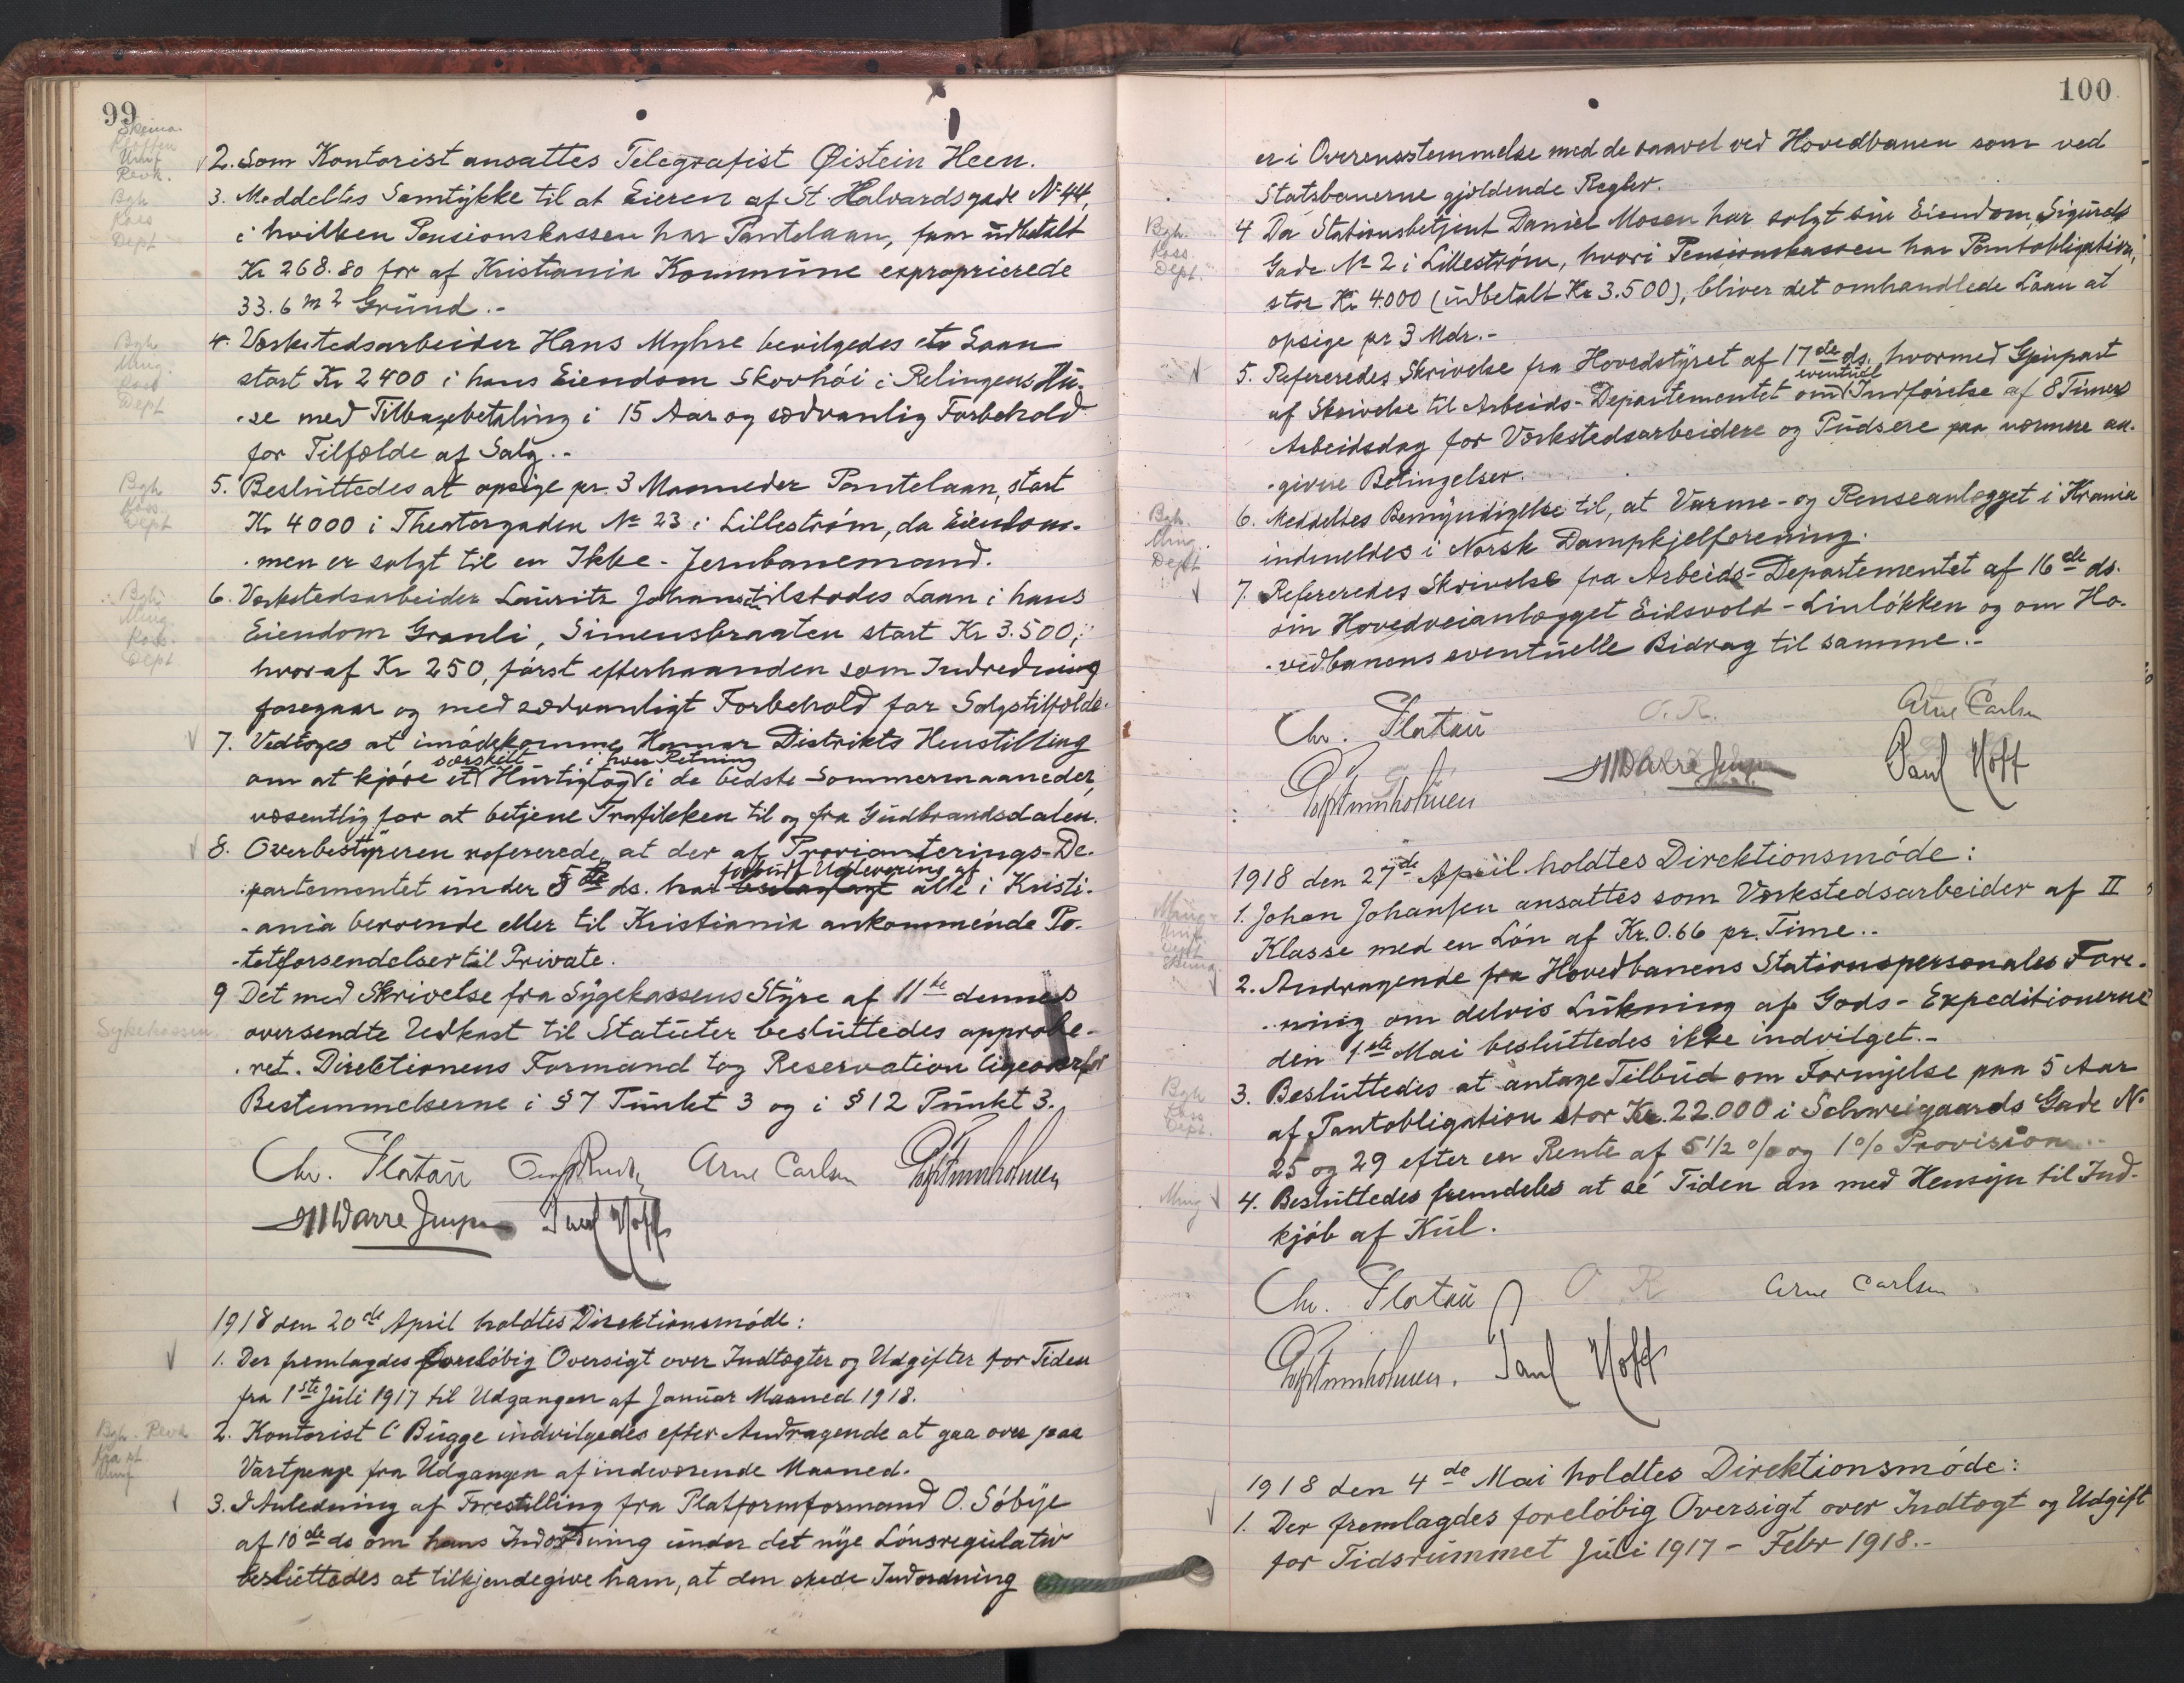 99
2. Som Kontorist ansattes Telegrafist Øistein Heen.
3. Meddeltes Samtykke til at Eieren af St. Halvardsgade № 44,
i hvilken Pensionskassen har Pantelaan, faar udbetalt
Kr 268.80 for af Kristiania Kommune exproprierede
33.6 m2 Grund.-
4. Værkstedsarbeider Hans Myhre bevilgedes et Laan
stort Kr 2400 i hans Eiendom Skovhöi i Relingens Hu-
-se med Tilbagebetaling i 15 Aar og sædvanlig Forbehold
for Tilfælde af Salg.-
5. Besluttedes at opsige pr. 3 Maaneder Pantelaan, stort
Kr 4000 i Theatergaden № 23 i Lilleström, da Eiendom-
-men er solgt til en Ikke-Jernbanemand.
6. Værkstedsarbeider Lauritz Johansen tilstodes Laan i hans
Eiendom Granli, Simensbraaten stort Kr 3.500,
hvoraf Kr 250, först efterhaanden som Indredning
foregaar og med sædvanligt Forbehold for Salgstilfælde.
7. Vedtoges at imödekomme Hamar Distrikts Henstilling
særskilt i hver Retning
om at kjöre et Hurtigtog i de bedste Sommermaaneder,
væsentlig for at betjene Trafikken til og fra Gudbrandsdalen.
8. Overbestyreren refererede, at der af Provianterings-De-
forbudt Udlevering af
partementet under 5te ds. har beslaglagt alle i Kristi-
-ania beroende eller til Kristiania ankommende Po-
-tetforsendelser til Private.
9 Det med Skrivelse fra Sygekassens Styre af 11te dennes
Sykekassen
oversendte Udkast til Statuter besluttedes approbe-
-ret. Direktionens Formand tog Reservation ligeoverfor
Bestemmelserne i § 7 Punkt 3 og i § 12 Punkt 3.
Chr. Platou Arne Carlsen
Paul Hoff
1918 den 20de April holdtes Direktionsmöde:
1. Der fremlagdes foreløbig Oversigt over Indtægter og Udgifter for Tiden
fra 1ste Juli 1917 til Udgangen af Januar Maaned 1918.
2. Kontorist C Bugge indvilgedes efter Andragende at gaa over paa
Vartpenge fra Udgangen af indeværende Maaned.
3. I Anledning af Forestilling fra Platformformand O. Söbye
af 10de ds om hans Indordning under det nye Lönsregulativ
besluttedes at tilkjendegive ham, at den skede Indordning
100
er i Overensstemmelse med de saavel ved Hovedbanen som ved
Statsbanerne gjældende Regler.
Bgh.
Kass.
Dept.
4 Da Stationsbetjent Daniel Mosen har solgt sin Eiendom, Sigurds
Gade № 2 i Lilleström, hvori Pensionskassen har Pantobligation,
stor Kr 4.000 (udbetalt Kr 3.500), bliver det omhandlede Laan at
opsige pr 3 Mdr.-
5. Refereredes Skrivelse fra Hovedstyret af 17de ds. hvormed Gjenpart
eventuel
af Skrivelse til Arbeids-Departementet om Indförelse af 8 Timers
Arbeidsdag for Værkstedsarbeidere og Pudsere paa nærmere an-
-givne Betingelser.
6. Meddeltes Bemyndigelse til, at Varme- og Renseanlægget i Krania
indmeldes i Norsk Dampkjelforening.
7. Refereredes Skrivelse fra Arbeids-Departementet af 16de ds.
om Hovedveianlægget Eidsvold-Linlökken og om Ho-
-vedbanens eventuelle Bidrag til samme.-
Chr. Platou O. R. Arne Carlsen
Paul Hoff
1918 den 27de April holdtes Direktionsmöde:
1. Johan Johansen ansattes som Værkstedsarbeider af II
Klasse med en Lön af Kr. 0.66 pr. Time..
2. Andragende fra Hovedbanens Stationspersonales Fore-
-ning om delvis Lukning af Gods-Expeditionerne
den 1ste Mai besluttedes ikke indvilget.-
3. Besluttedes at antage Tilbud om Fornyelse paa 5 Aar
af Pantobligation stor Kr. 22.000 i Schweigaards Gade №
25 og 29 efter en Rente af 5 1/2 % og 1 % Provision..
4. Besluttedes fremdeles at sé Tiden an med Hensyn til Ind-
kjöb af Kul.
Chr. Platou O R Arne Carlsen
Paul Hoff
1918 den 4de Mai holdtes Direktionsmöde:
1. Der fremlagdes forelöbig Oversigt over Indtægt og Udgift
for Tidsrummet Juli 1917 - Febr 1918.-